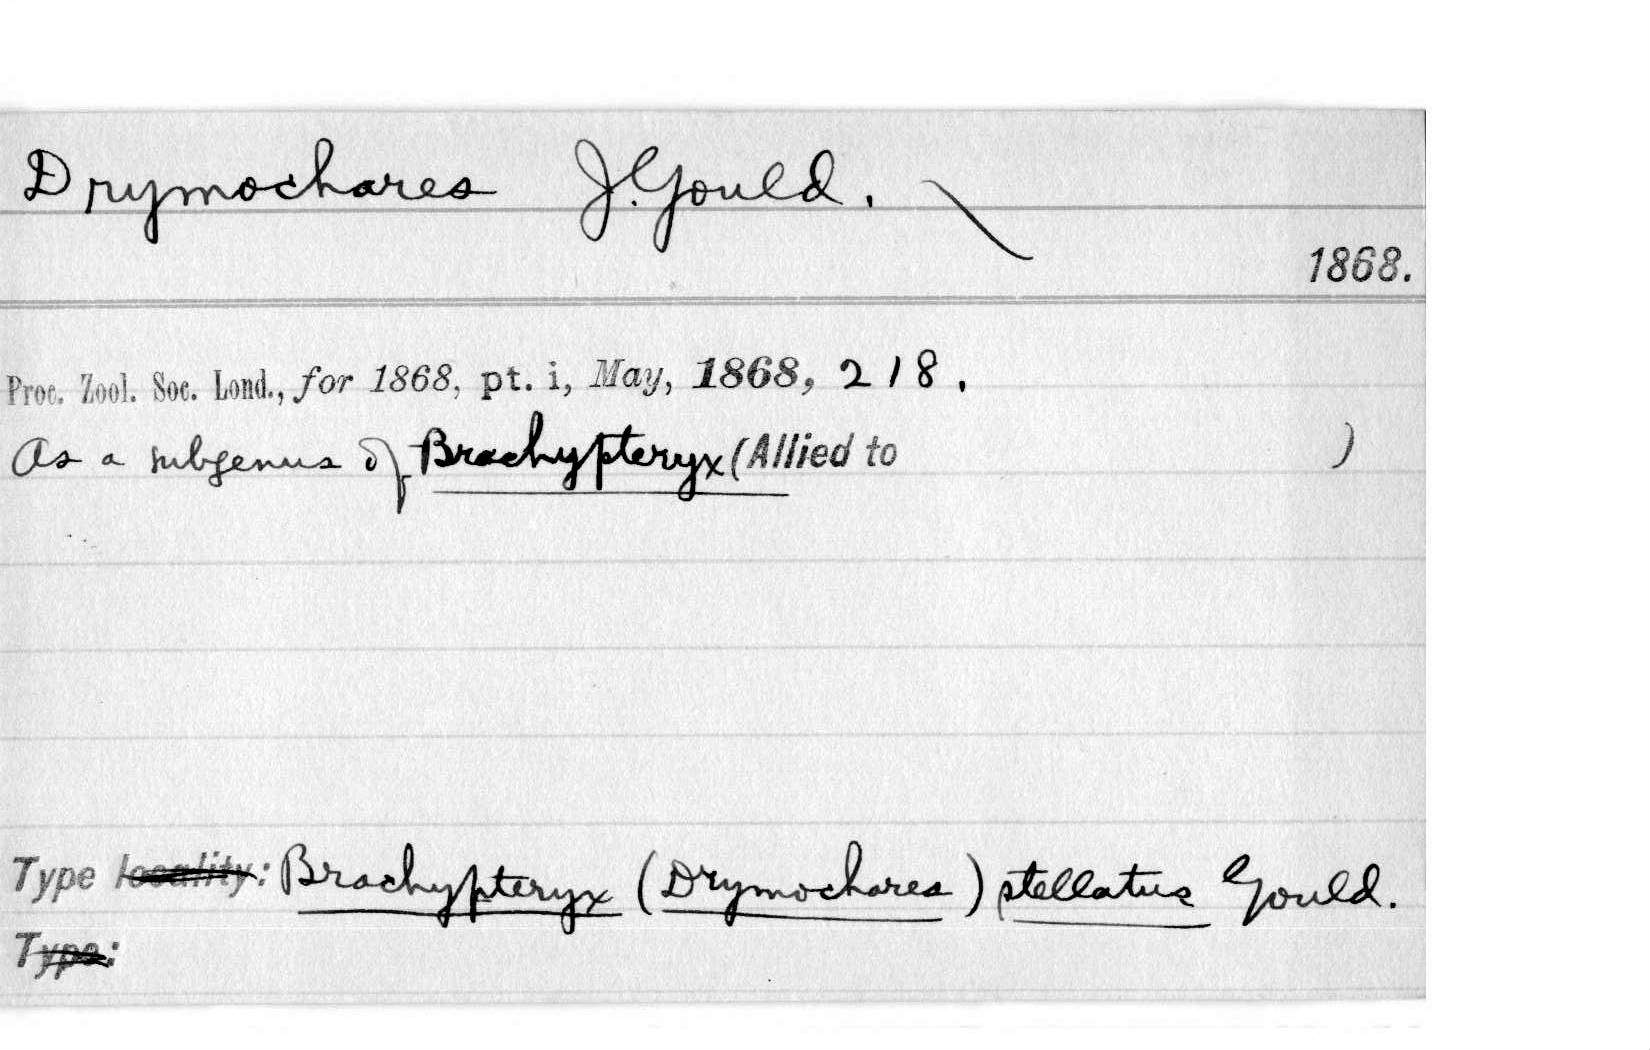 Drymochares J. Gould.
1868.
Proc. Zool. Soc. Lond., for 1868, pt. i, May, 1868, 218.
As a subgenus of Brachypteryx (Allied to )
Type locality: Brachypteryx (Drymochares) stellatus Gould.
Type: